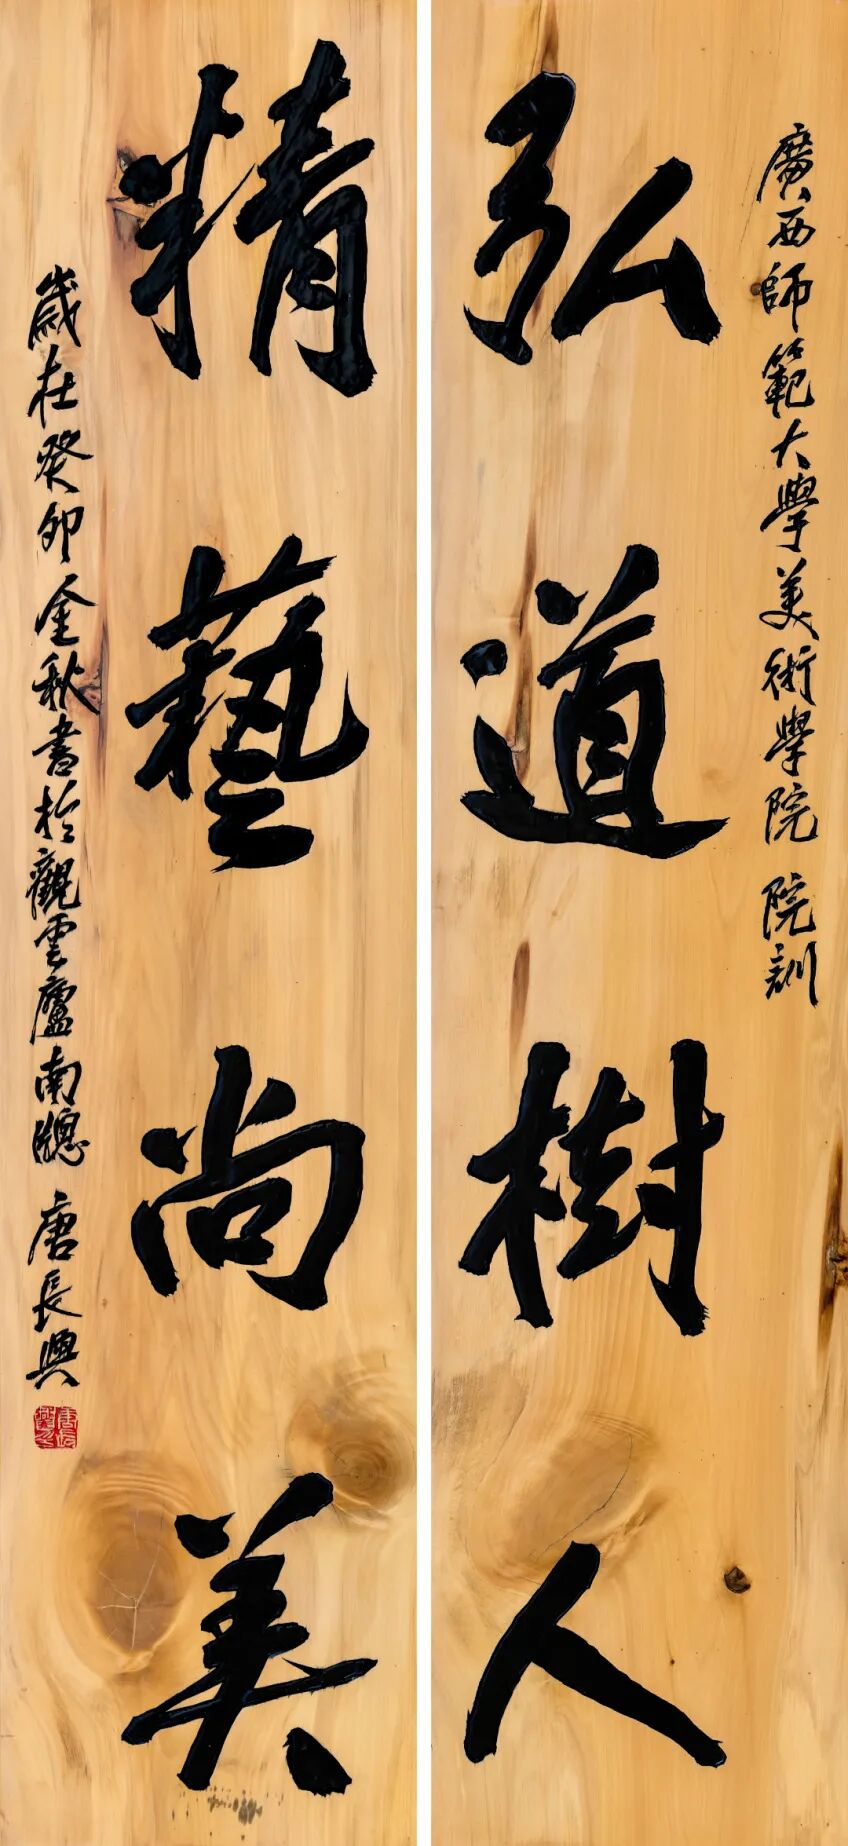 廣西師範大學美術學院 院訓
弘道樹人
精藝尚美
歲在癸卯金秋書於觀雲廬南牕 唐長興